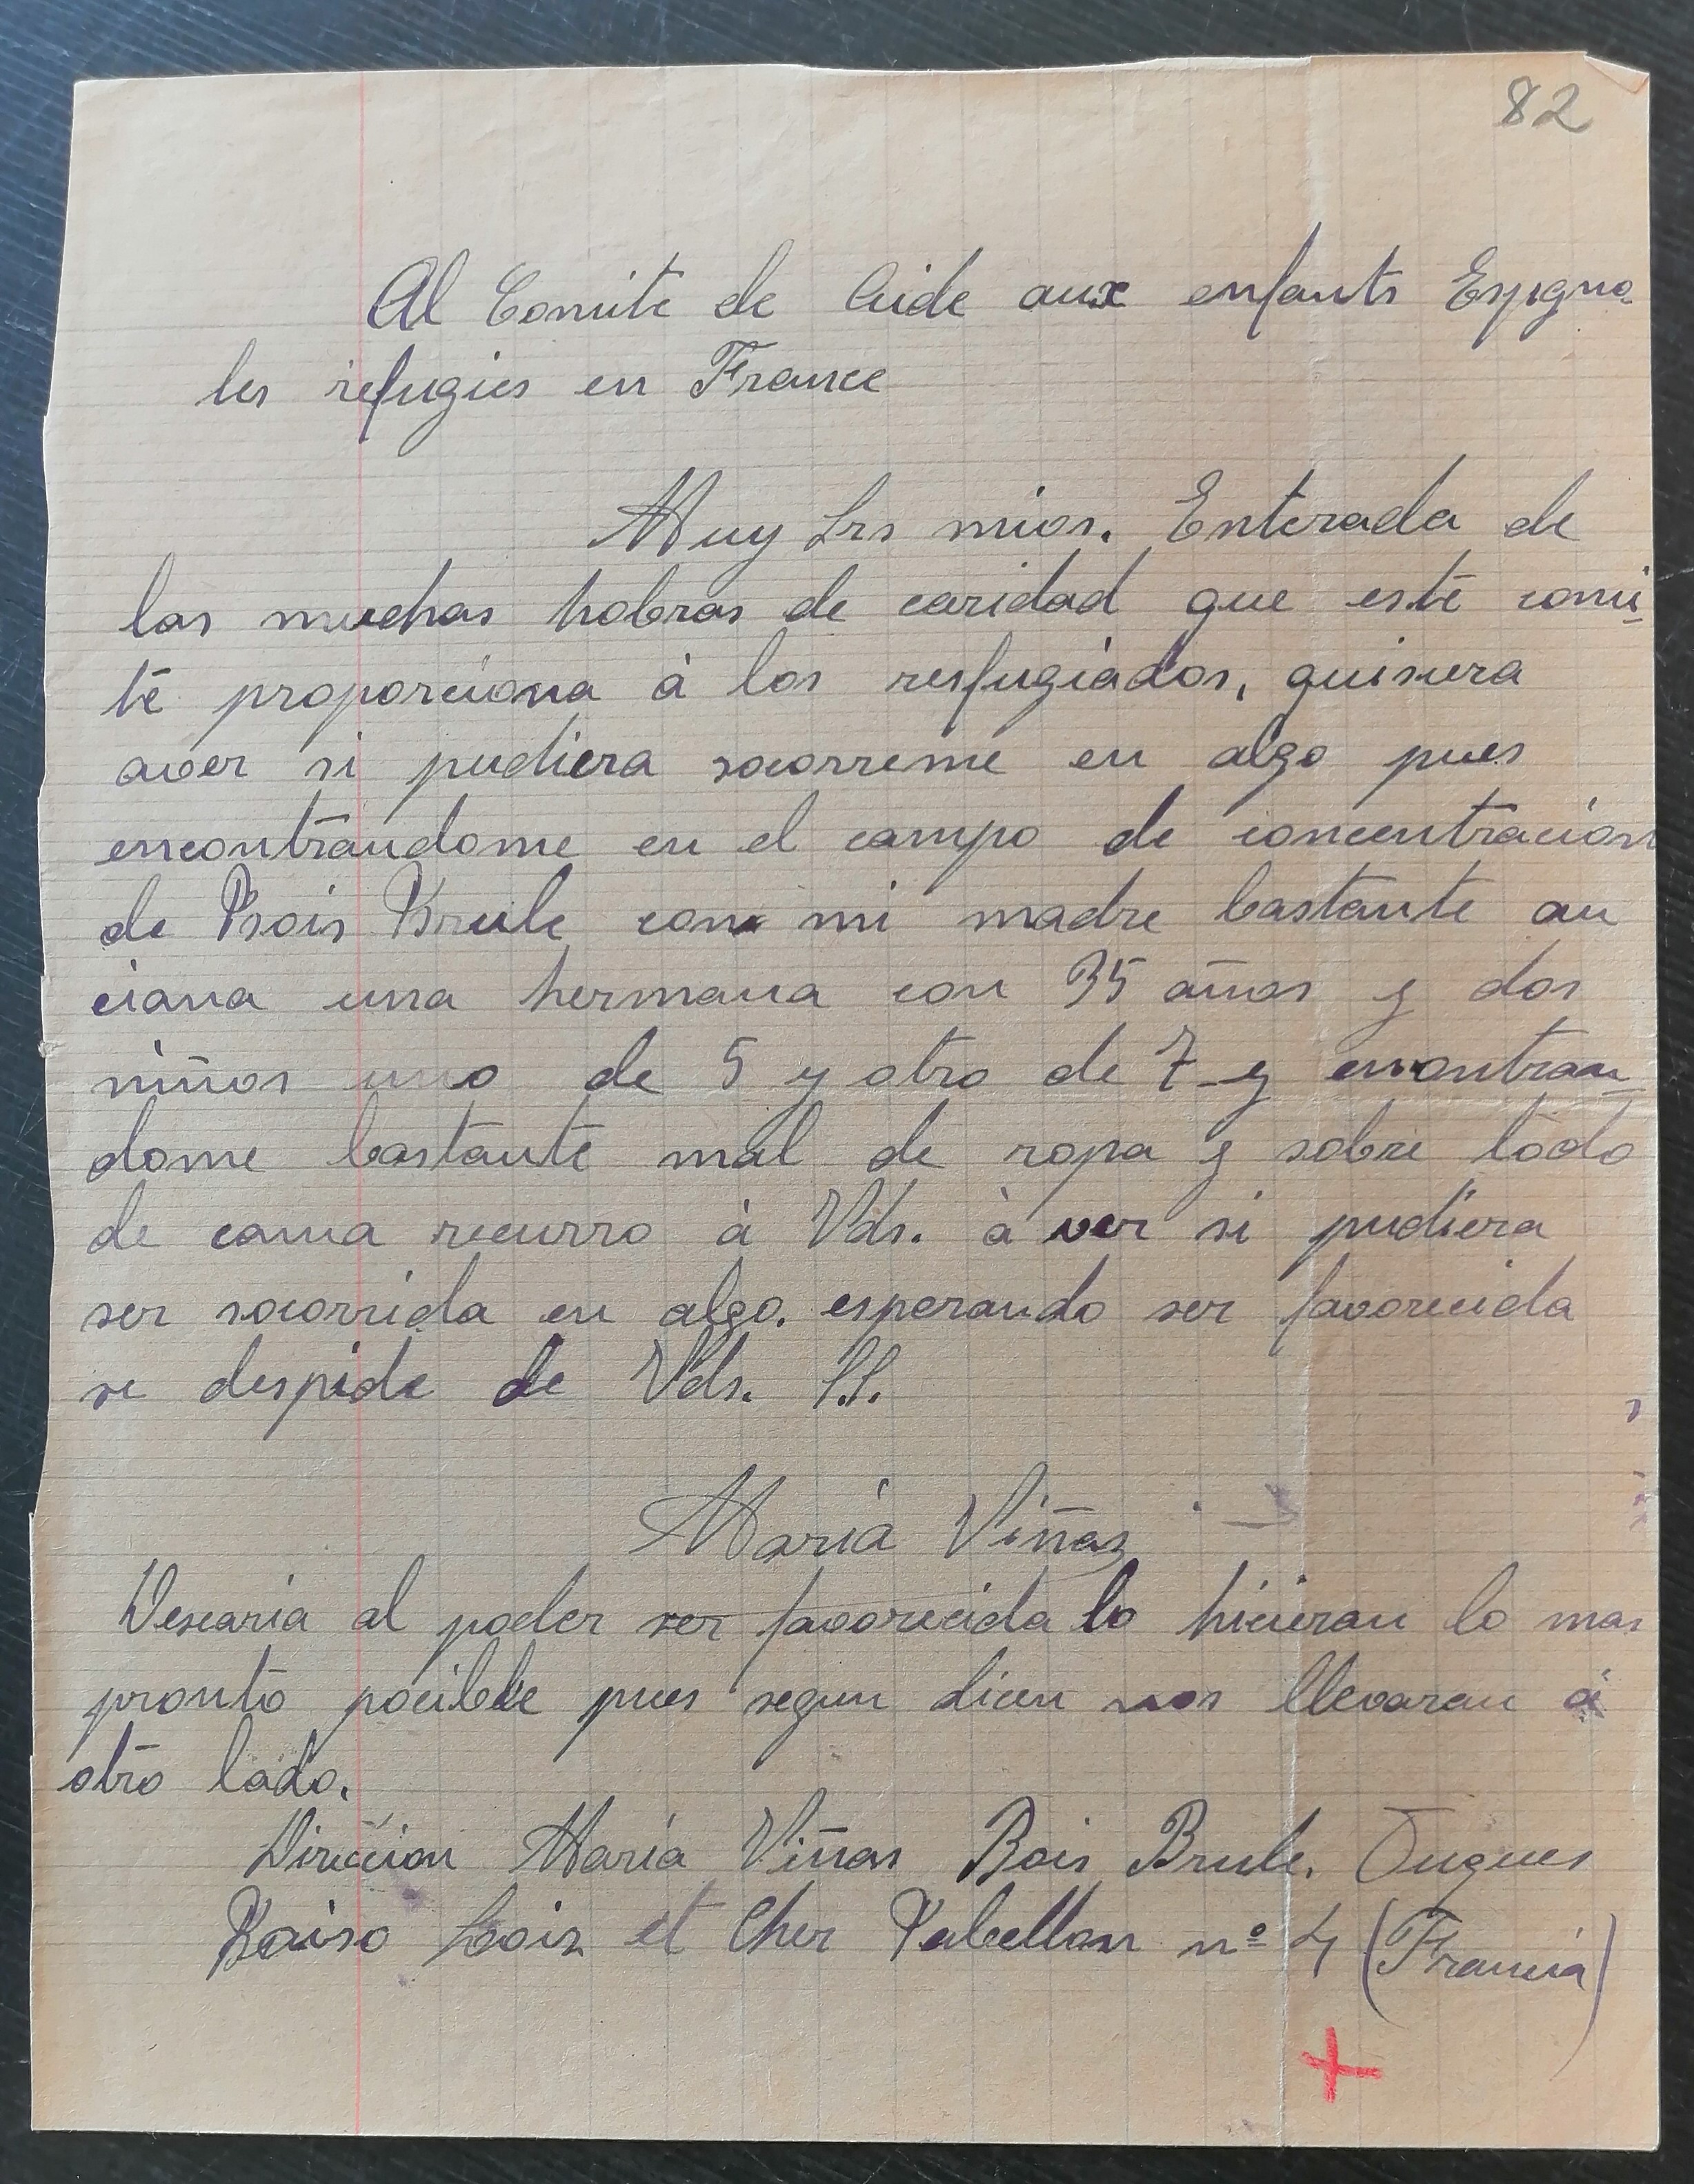 82
Al Comite de Aide aux enfants Espigno
les refugies en France
Muy Srs mios. Enterada de
las muchas hobras de caridad que esté comi
té proporciona à los resfugiados, quisiera
aver si pudiera socorreme en algo pues
encontrándome en el campo de concentracion
de Bois Brule con mi madre bastante an
ciana una hermana con 35 años y dos
niños uno de 5 y otro de 7 y encontran
dome bastante mal de ropa y sobre todo
de cama recurro à Vds. à ver si pudiera
ser socorrida en algo. esperando ser favorecida
se despide de Vds. S.S.
Maria Viñas
Desearia al poder ser favorecida lo hicieran lo mas
pronto pocible pues segun dicen nos llevaran á
otro lado.
Direccion Maria Viñas Bois Brule. Ougues
Raiso Loir et Cher Pabellon nº 4 (Francia)
+